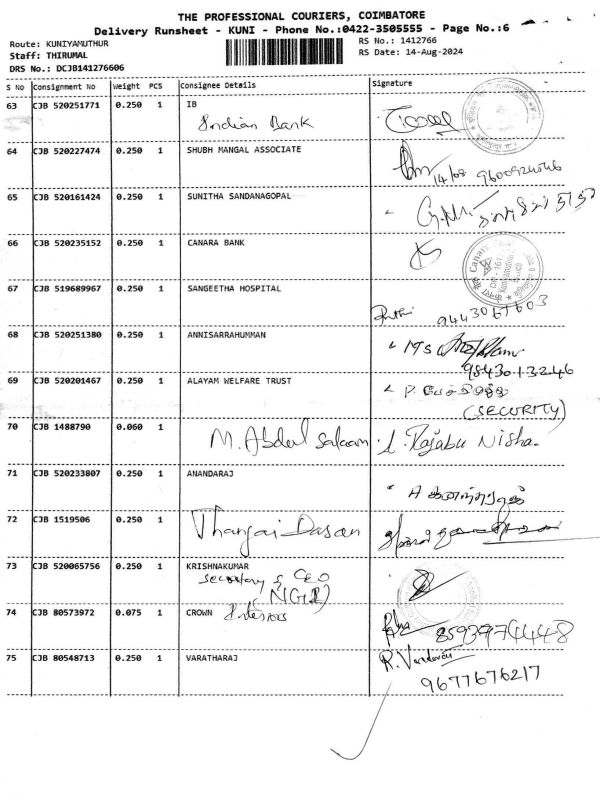 THE PROFESSIONAL COURIERS, COIMBATORE
Delivery Runsheet - KUNI - Phone No.:0422-3505555 - Page No.:6
Route: KUNIYAMUTHUR RS No.: 1412766
Staff: THIRUMAL RS Date: 14-Aug-2024
DRS No.: DCJB141276606
S No Consignment No Weight PCS Consignee Details Signature
63 CJB 520251771 0.250 1 IB
Indian Bank
64 CJB 520227474 0.250 1 SHUBH MANGAL ASSOCIATE
14/08
65 CJB 520161424 0.250 1 SUNITHA SANDANAGOPAL
66 CJB 520235152 0.250 1 CANARA BANK
67 CJB 519689967 0.250 1 SANGEETHA HOSPITAL
9443067603
68 CJB 520251380 0.250 1 ANNISARRAHUMMAN
9843013246
69 CJB 520201467 0.250 1 ALAYAM WELFARE TRUST
(SECURITY)
70 CJB 1488790 0.060 1 M. Abdul Salaam L. Rajabu Nisha
71 CJB 520233807 0.250 1 ANANDARAJ
72 CJB 1519506 0.250 1 Thanjai Dasan
73 CJB 520065756 0.250 1 KRISHNAKUMAR
Secretary & CEO
74 CJB 80573972 0.075 1 CROWN Interiors
75 CJB 80548713 0.250 1 VARATHARAJ
9677676217